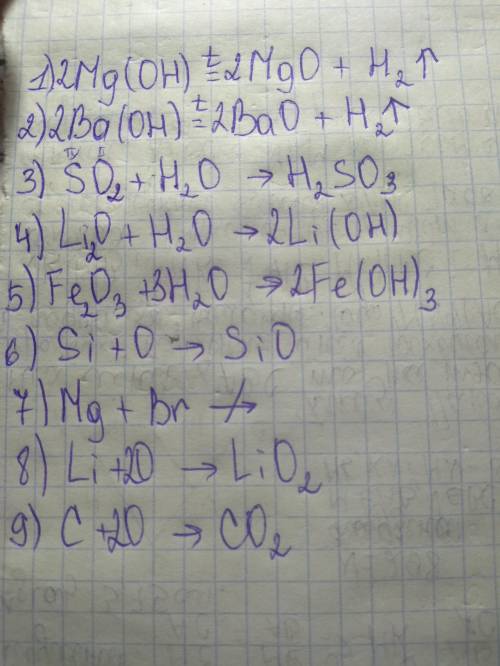 1) 2Mg(OH) t= 2MgO + H₂↑
2) 2Ba(OH) t= 2BaO + H₂↑
IV II
3) SO₂ + H₂O → H₂SO₃
4) Li₂O + H₂O → 2Li(OH)
5) Fe₂O₃ + 3H₂O → 2Fe(OH)₃
6) Si + O → SiO
7) Mg + Br ↛
8) Li + 2O → LiO₂
9) C + 2O → CO₂